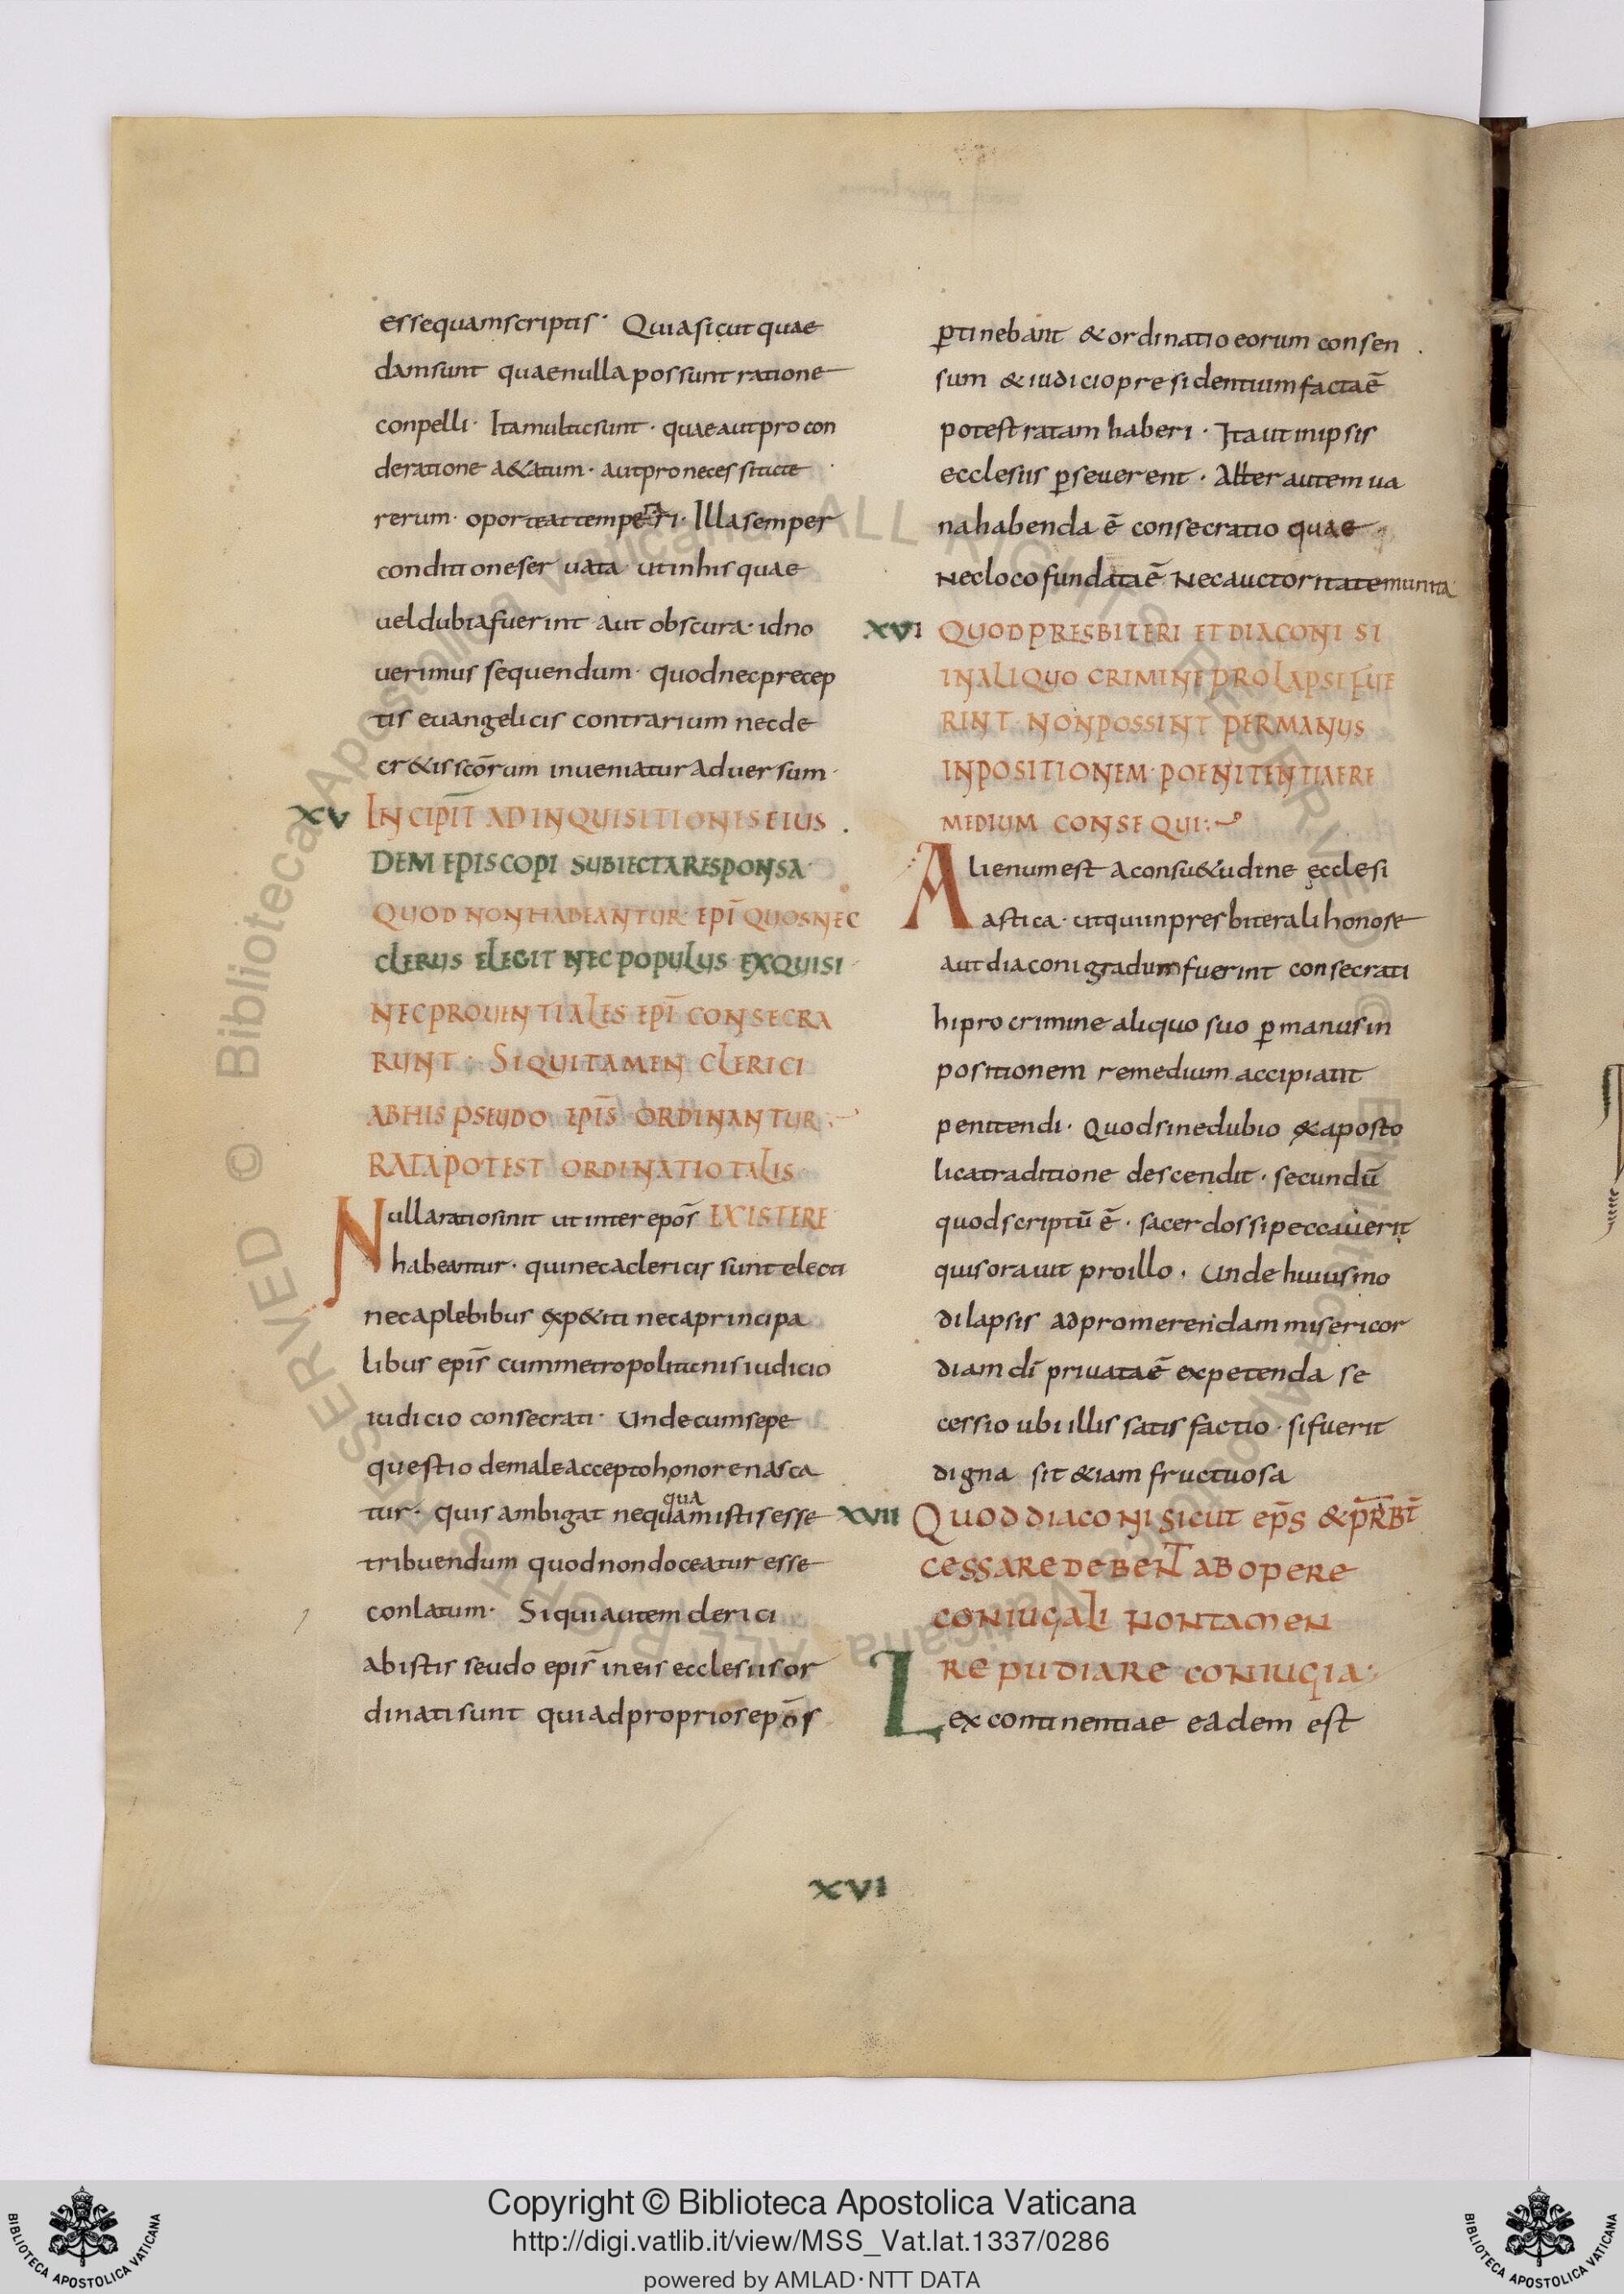 essequamscriptis· Quiasicutquae
damsunt quaenullapossuntratione
conpelli· Itamultesunt· quaeautprocon
deratione a&atum· autproneces sitate
rerum· oporteattemperari· Illasemper
conditioneser uata utinhisquae
ueldubiafuerint aut obscura· idno
uerimus sequendum· quodnecprecep
tis euangelicis contrarium necde
cr&isscōrum inueniaturaduersum·
XV INCIPIT̄ ADINQUISITIONISEIUS
DEM EPISCOPI SUBIECTARESPONSA·
QUOD NONHABEANTUR· EPĪ QUOSNEC
CLERUS ELEGIT NEC POPULUS EXQUISI
NECPROUINTIALES EPĪ CONSECRA
RUNT· SIQUITAMEN CLERICI
ABHIS PSEUDO EPĪS ORDINANTUR·
RATAPOTEST ORDINATIO TALIS
Nullaratiosinit ut inter epōs EXISTERE
habeantur· quinecaclericis suntelecti
necaplebibus exp&iti necaprincipa
libus epis̄ cummetropolitanisiudicio
iudicio consecrati· Undecumsepe
questio demaleacceptohonorenasca
tur· quis ambigat nequaquamistisesse
tribuendum quodnondoceatur esse
conlatum· Siquiautem clerici
abistis seudo epis̄ ineis ecclesiisor
dinatisunt quiadpropriosepōs
p̄tinebant &ordinatioeorum consen
sum &iudiciopresidentiumfactaē
potestratamhaberi· Itautinipsis
ecclesiis p̄seuerent· Aliter autem ua
nahabenda ē consecratio quae
Neclocofundataē Necauctoritatemunita
XVI QUODPRESBITERI ETDIACONI SI
INALIQUO CRIMINEPROLAPSIFUE
RINT NONPOSSINT PERMANUS
INPOSITIONEM· POENITENTIAERE
MEDIUM CONSEQUI:
Alienumest aconsu&udine ecclesi
astica· utquiinpresbiteralihonore
autdiaconigradumfuerint consecrati
hiprocriminealiquo suo p̄manusin
positionem remedium accipiant
penitendi· Quodsinedubio exaposto
licatraditione descendit· secundū
quodscriptū ē· sacerdossipeccauerit
quisorauit proillo· Undehuiusmo
dilapsis adpromerendammisericor
diam dī priuataē expetenda se
cessio ubi illis satisfactio· sifuerit
digna sit &iam fructuosa
XVII QUODDIACONI SICUT EPS̄ &PRB̄T̄
CESSAREDEBENT ABOPERE
CONIUGALI NONTAMEN
REPUDIARE CONIUGIA·
Lex continentiae eadem est
XVI
Copyright © Biblioteca Apostolica Vaticana
http://digi.vatlib.it/view/MSS_Vat.lat.1337/0286
powered by AMLAD·NTT DATA
BIBLIOTECA APOSTOLICA VATICANA
BIBLIOTECA APOSTOLICA VATICANA